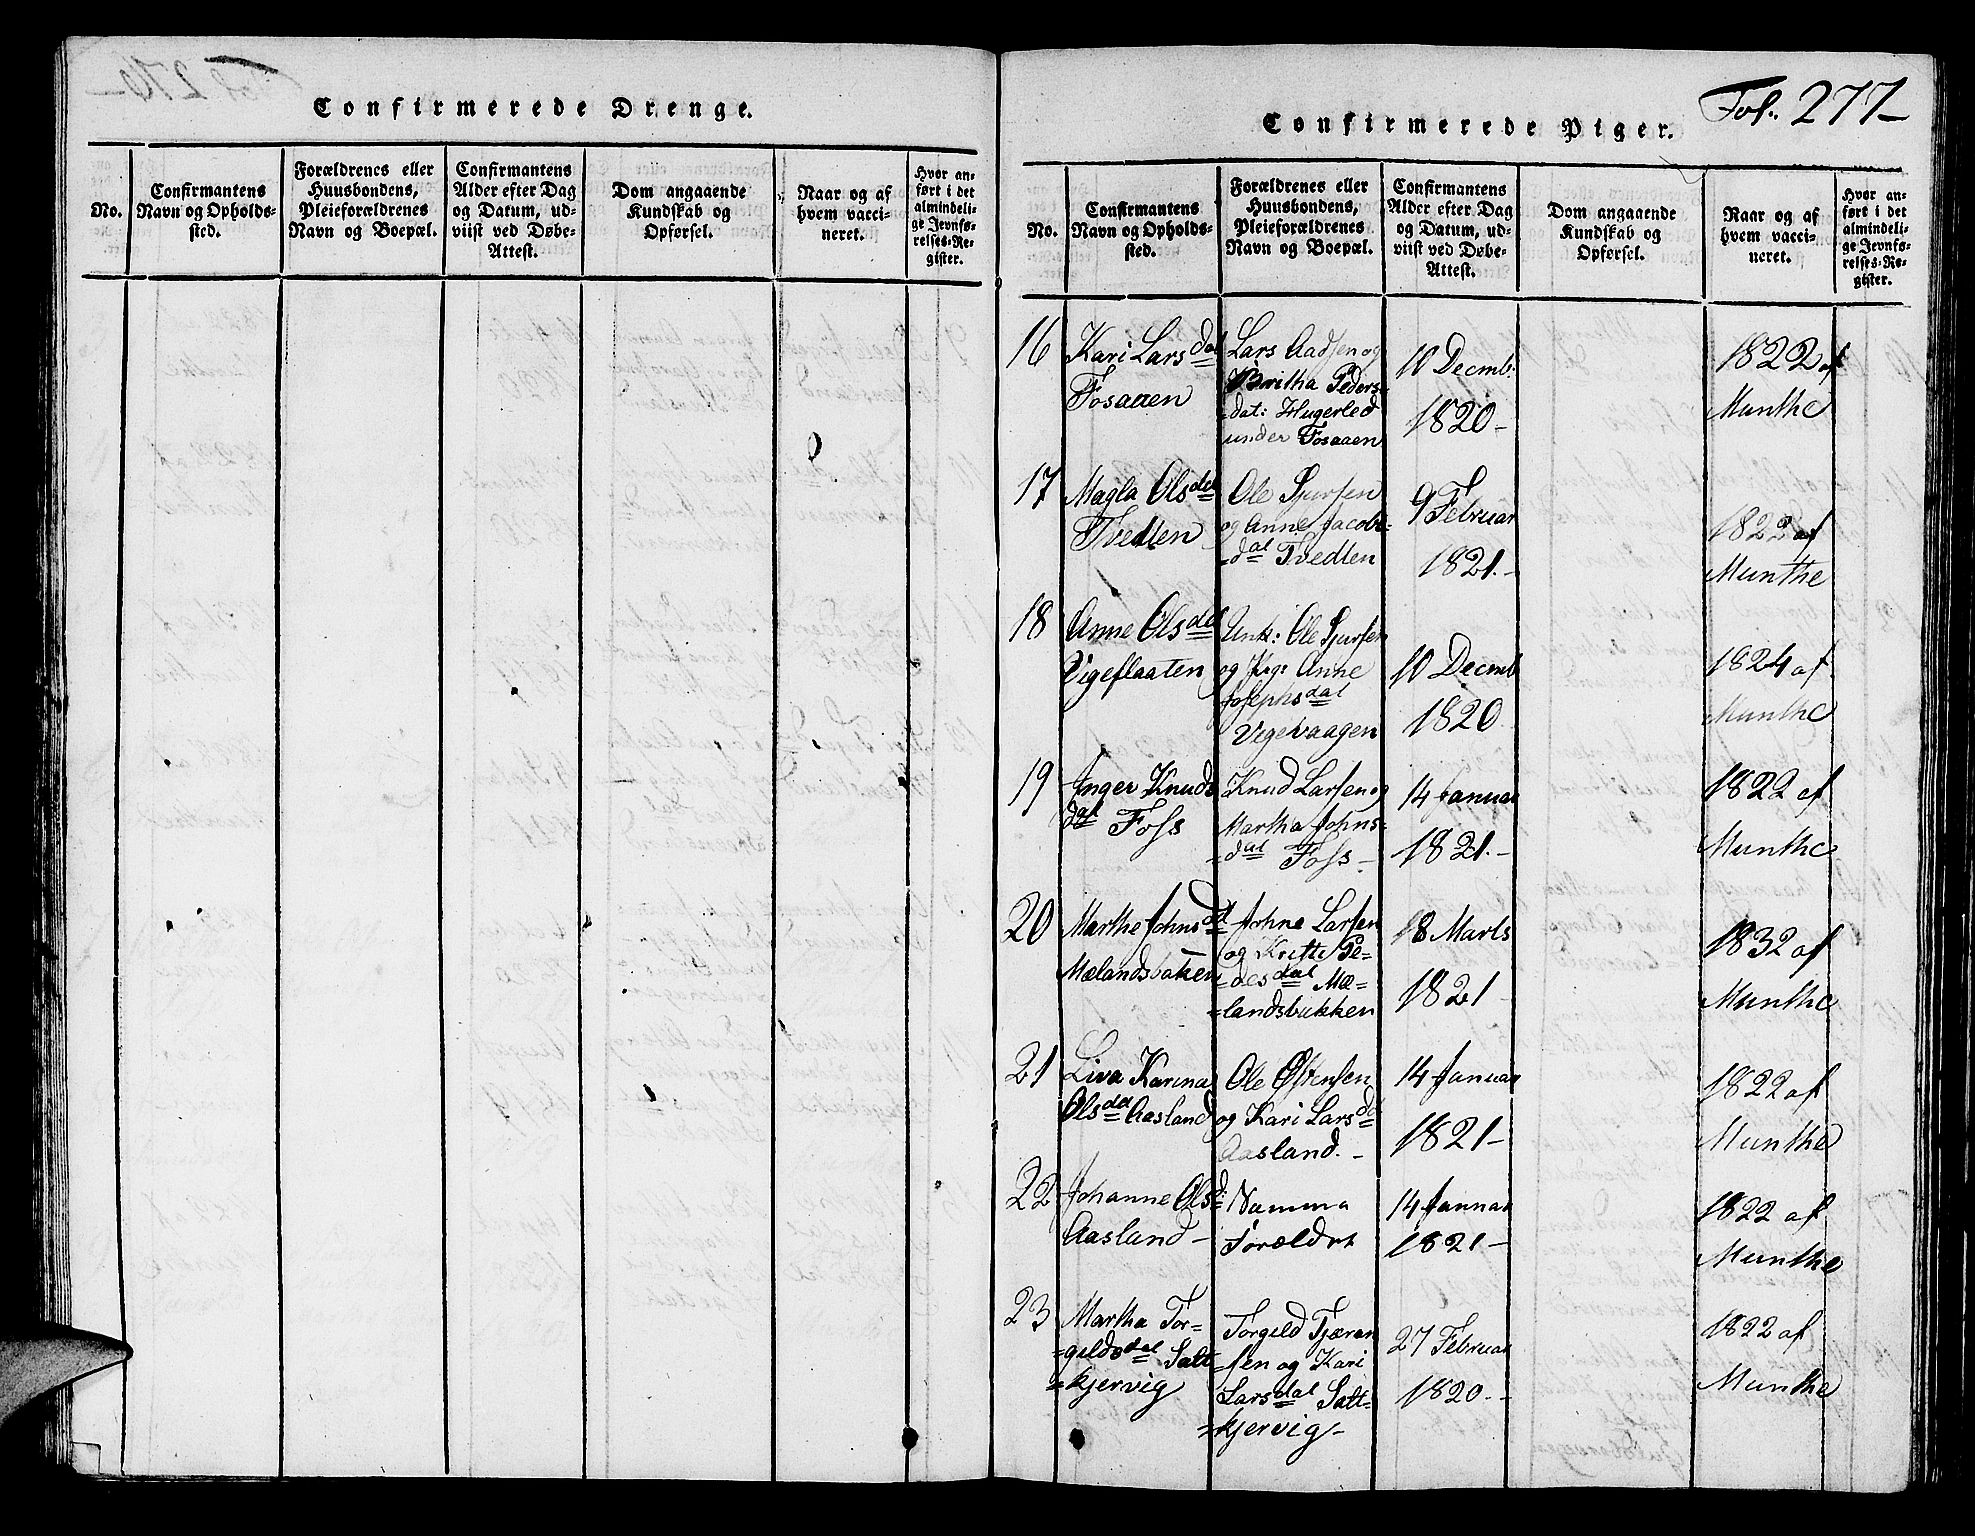 Confirmerede Drenge.
No.
Confirmantens
Navn og Opholds-
sted.
Forældrenes eller
Huusbondens,
Pleieforældrenes
Navn og Boepæl.
Confirmantens
Alder efter Dag
og Datum, ud-
viist ved Døbe-
Attest.
Dom angaaende
Kundskab og
Opførsel.
Naar og af
hvem vacci-
neret.
Hvor an-
ført i det
almindeli-
ge Jevnfø-
relses-Re-
gister.
Fol. 277
Confirmerede Piger.
No.
Confirmantens
Navn og Opholds-
sted.
Forældrenes eller
Huusbondens,
Pleieforældrenes
Navn og Boepæl.
Confirmantens
Alder efter Dag
og Datum, ud-
viist ved Døbe-
Attest.
Dom angaaende
Kundskab og
Opførsel.
Naar og af
hvem vacci-
neret.
Hvor an-
ført i det
almindeli-
ge Jevnfø-
relses-Re-
gister.
16
Kari Larsdat
Fosaaen
Lars Aadsen og
Britha Peders-
dat: Hugerled
under Fosaaen
10 Decmb:
1820-
1822 af
Munthe
17
Magla Olsdat
Tvedten
Ole Sjursen
og Anne Jacobs-
dat Tvedten
9 Februar
1821.-
1822 af
Munthe
18
Anne Olsdat
Vigeflaaten
Unk: Ole Sjursen
og Pig: Anne
Josephsdat
Vigevaagen
10 Decmb
1820
1824 af
Munthe
19
Inger Knuds
dat Foss
Knud Larsen og
Martha Johns-
=dat Foss-
14 Januar
1821.-
1822 af
Munthe
20
Marthe Johnsd
Mælandsbaken
Johne Larsen
og Kritti Pe-
=desdat Mæ-
=landsbakken
18 Marts
1821
1832 af
Munthe
21
Liva Karina
Olsdat Aasland
Ole Østensen
og Kari Larsd
Aasland.-
14 Januar
1821-
1822 af
Munthe
22
Johanne Olsd:
Aasland-
Samma
Forældre
14 Januar
1821-
1822 af
Munthe
23
Martha Tor-
=gildsdat Salt
=kjervig
Torgild Tjæran
sen og Kari
Larsdat Salt-
=kjervig-
27 Februar
1820.-
1822 af
Munthe